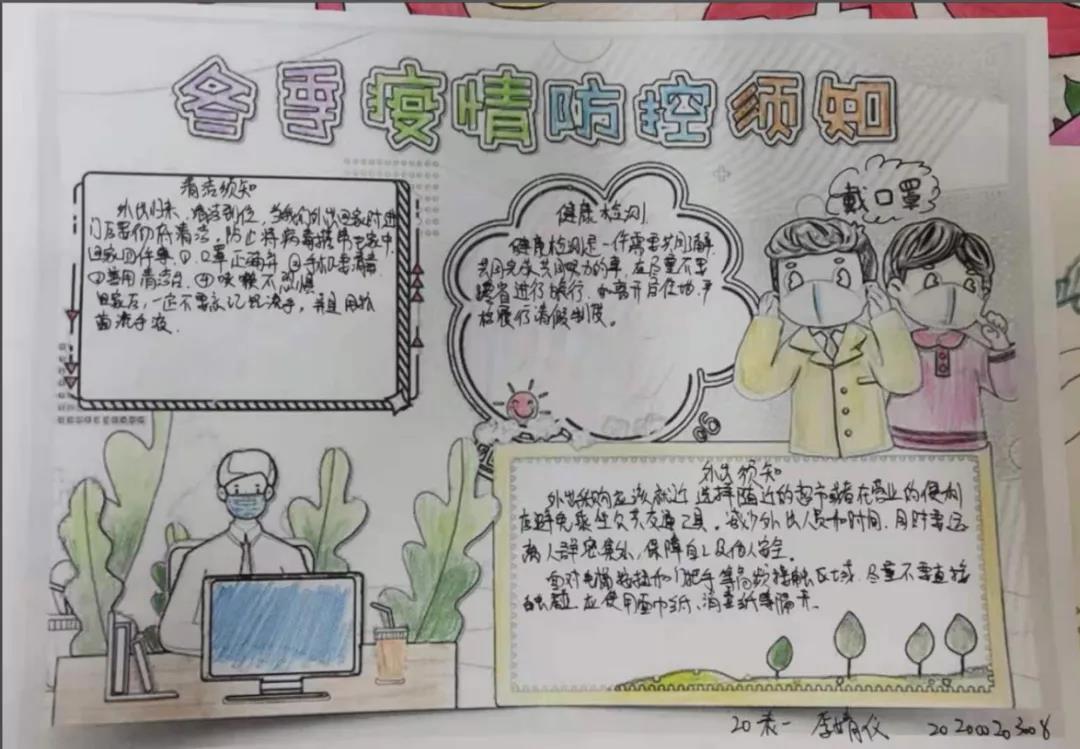 冬季疫情防控须知
清洁须知
外出归来，清洁到位，当我们外出回家时进
门后要彻底清洁，防止将病毒携带于家中，
回家四件事：①口罩正确弃 ②手机要消毒
③善用清洁台 ④咳嗽不
回家后，一定不要忘记洗手，并且用抗
菌洗手液。
健康检测
健康检测是一件需要共同了解
共同完成共同努力的事，应尽量不要
跨省进行旅行，如离开居住地，严
格履行请假制度。
戴口罩
外出须知
外出采购应该就近选择随近的超市或者在营业的便利
店避免乘坐公共交通工具。减少外出人员和时间，同时要远
离人群密集处，保障自己及他人安全。
面对电梯按钮和门把手等高频接触区域，尽量不要直接
触碰，应使用面巾纸、消毒纸等隔开。
20 一 李婧仪 202000203008